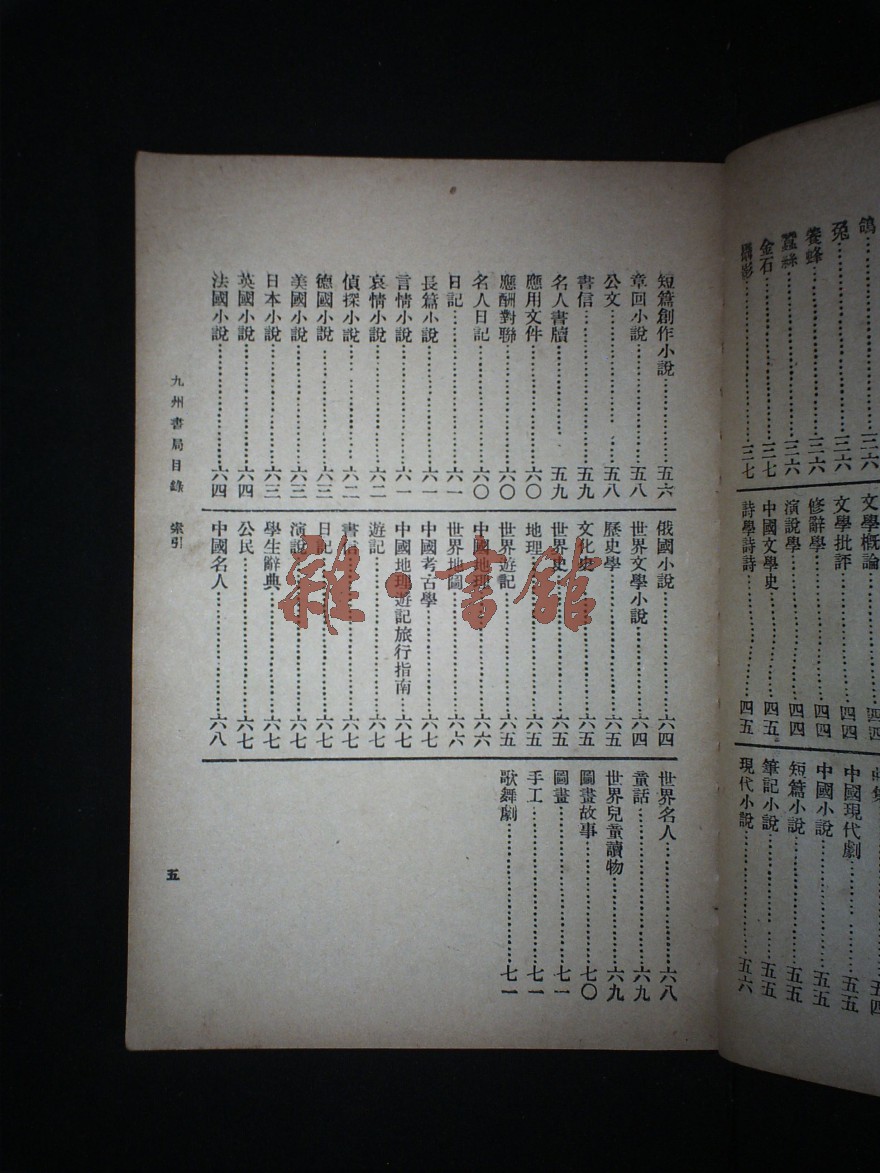 鴿……三六
兔……三六
養蜂……三六
蠶絲……三六
金石……三七
攝影……三七
文學概論……四四
文學批評……四四
修辭學……四四
演說學……四四
中國文學史……四五
詩學詩詩……四五
五四
中國現代劇……五五
中國小說……五五
短篇小說……五五
筆記小說……五五
現代小說……五六
短篇創作小說……五六
章回小說……五八
公文……五八
書信……五九
名人書牘……五九
應用文件……六〇
應酬對聯……六〇
名人日記……六〇
日記……六一
長篇小說……六一
言情小說……六一
哀情小說……六二
偵探小說……六二
德國小說……六三
美國小說……六三
日本小說……六三
英國小說……六四
法國小說……六四
俄國小說……六四
世界文學小說……六四
歷史學……六五
文化史……六五
世界史……六五
地理……六五
世界遊記……六五
中國地理……六六
世界地圖……六六
中國考古學……六七
中國地理遊記旅行指南……六七
遊記……六七
書信……六七
日記……六七
演說……六七
學生辭典……六七
公民……六七
中國名人……六八
世界名人……六八
童話……六九
世界兒童讀物……六九
圖畫故事……七〇
圖畫……七一
手工……七一
歌舞劇……七一
九州書局目錄 索引
五
雜·書館